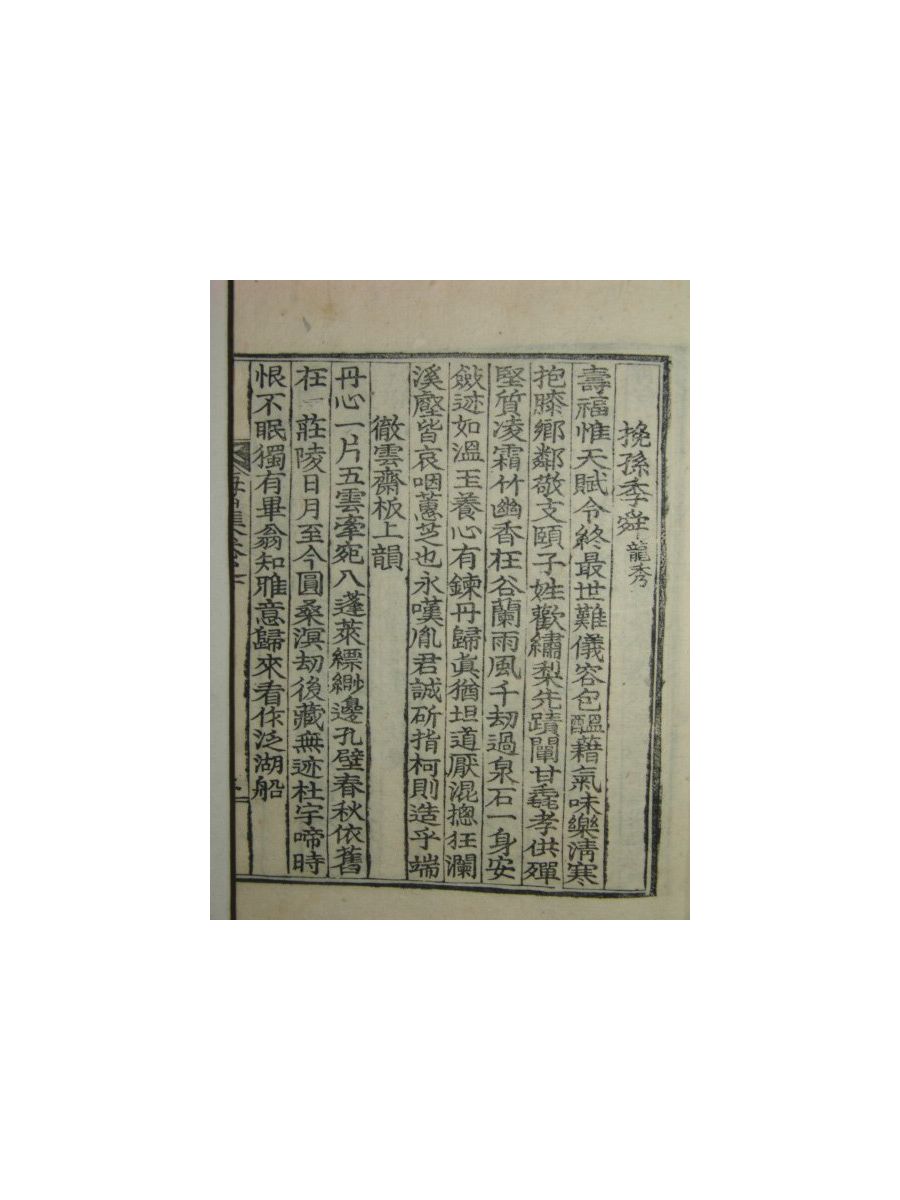 挽孫季舜龍秀
壽福惟天賦令終最世難儀容包醞藉氣味樂淸寒
抱膝鄕鄰敬支頤子姓歡繡梨先蹟闡甘毳孝供殫
堅質凌霜竹幽香在谷蘭雨風千劫過泉石一身安
斂迹如溫玉養心有鍊丹歸眞猶坦道厭混摠狂瀾
溪壑皆哀咽蕙芝也永嘆胤君誠斫指柯則造乎端
徹雲齋板上韻
丹心一片五雲牽宛八蓬萊縹緲邊孔壁春秋依舊
在 莊陵日月至今圓桑溟劫後藏無迹杜宇啼時
恨不眠獨有畢翁知雅意歸來看作泛湖船